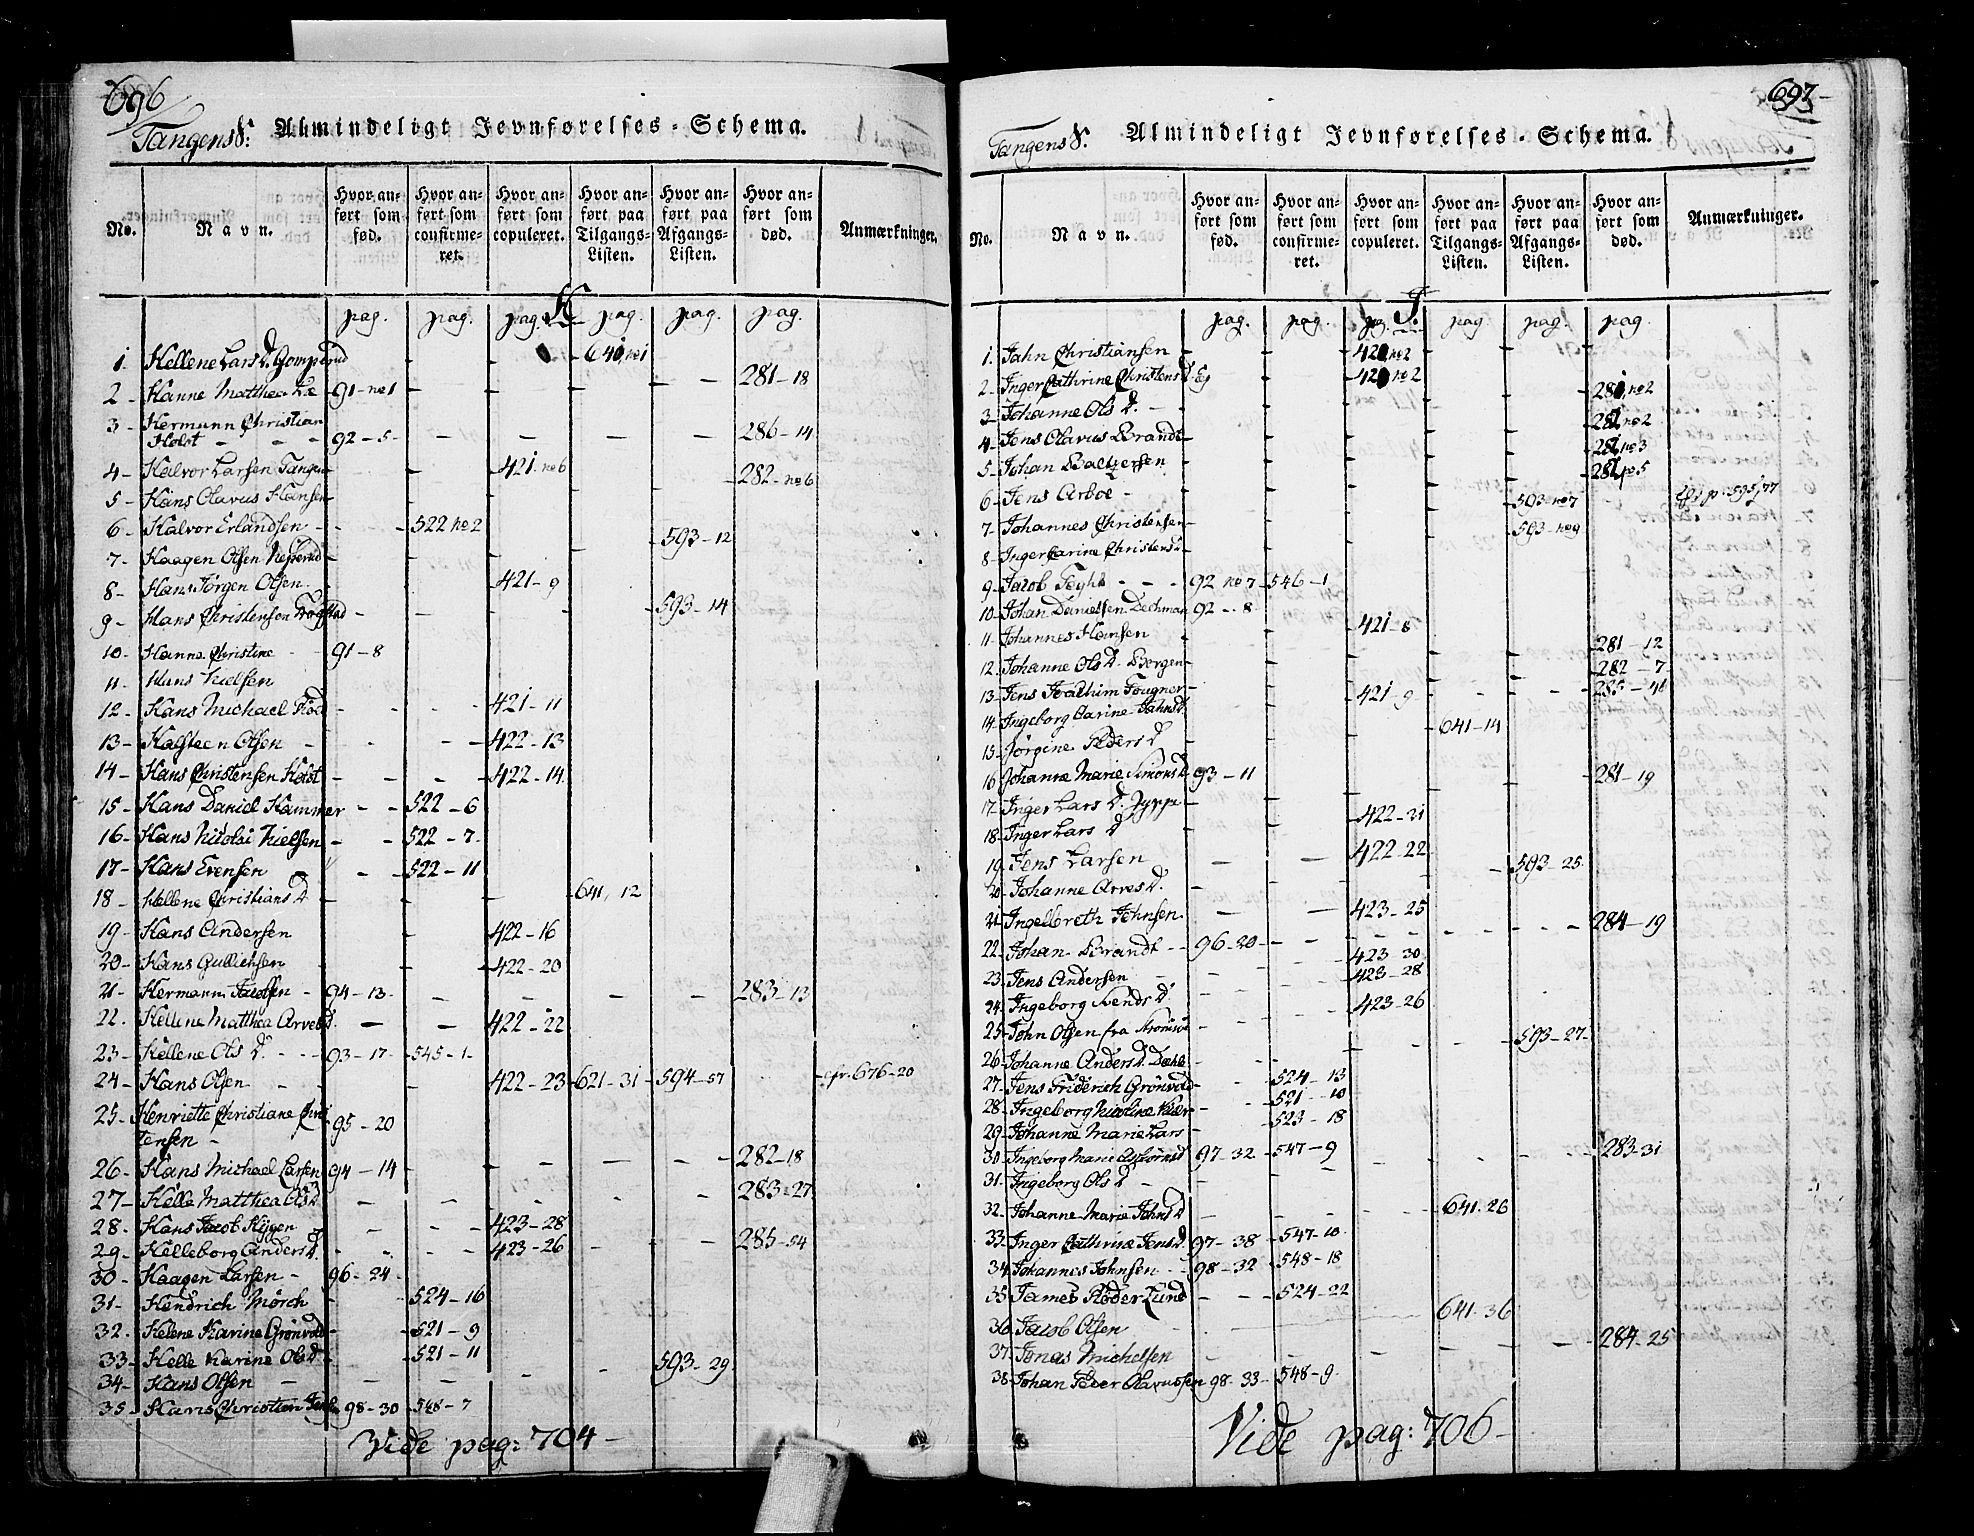 696
Tangens S. Almindeligt Jevnførelses-Schema.
No. Navn. Hvor anført som fød. Hvor anført som confirmeret. Hvor anført som copuleret. Hvor anført paa Tilgangs-Listen. Hvor anført paa Afgangs-Listen. Hvor anført som død. Anmærkninger.
H
pag. pag. pag. pag. pag. pag.
1. Hellene Lars D. - - 641, no 1
2 - Hanne Matthea 91 - no 1 - - - - - 281 - 18
3 - Hermann Christian
Holst - - - 92 - 5 - - - - - 286 - 14
4 - Halvor Larsen Tangen - - 421 no 6 - - 282 - no 6
5 - Hans Olavus Hansen
6 - Halvor Erlandsen - - 522 no 2
7 - Haagen Olsen - - - - 593 - 12
8 - Hans Jørgen Olsen - - 421 - 9
9 - Hans Christensen - - - - 593 - 14
10 - Hanne Christine - 91 - 8
11 - Hans Nielsen
12 - Hans Michael - - - 421 - 11
13 - Halsteen Olsen - - - 422 - 13
14 - Hans Christensen Holst - - - 422 - 14
15 - Hans Daniel Hammer - - 522 - 6
16 - Hans Nicolai Nielsen - - 522 - 7
17 - Hans Evensen - - 522 - 11
18 - Hellene Christians D - - - 641, 12
19 - Hans Andersen - - 422 - 16
20 - Hans Gullichsen - - 422 - 20
21 - Hermann Jacobsen - 94 - 13 - - - - - 283 - 13
22. Hellene Matthea - - 422 - 22
23 - Hellene Ols D. - - 93 - 17 - 545 - 1
24 - Hans Olsen - - 422 - 23 - 621 - 31 - 594 - 57 - cfr. 676 - 20
25. Henriette Christiane Chris
tensen - 95 - 20
26 - Hans Michael Larsen 94 - 14 - - - - - 282 - 18
27 - Helle Matthea Ols D - - - - - 283 - 27
28 - Hans Jacob - - - 423 - 28
29 - Helleborg Anders D. - - - 423 - 26 - - - 285 - 54
30 - Haagen Larsen - 96 - 24
31 - Hendrich Mörch - 524 - 16
32. Helene Karine Grönvold - - 521 - 9
33 - Helle Karine Ols D - - 521 - 11
34 - Hans Olsen - - - - - 593 - 29
35 - Hans Christian 98 - 30 - 548 - 7
Vide pag: 704 -
697
Tangens S. Almindeligt Jevnførelses-Schema.
No. Navn. Hvor anført som fød. Hvor anført som confirmeret. Hvor anført som copuleret. Hvor anført paa Tilgangs-Listen. Hvor anført paa Afgangs-Listen. Hvor anført som død. Anmærkninger.
J.
pag. pag. pag. pag. pag. pag.
1. Jahn Christiansen - - 421, no 2
2. Inger Cathrine Christens D. - - 421 no 2
3 - Johanne Ols D. - - - - - - 281, no 2
4 - Jens Olavus Brandt - - - - - 282 no 2
5 - Johan Baltzersen - - - - - 282, no 3
6 - Jens Arboe - - - - - - 282, no 5
7 - Johannes Christensen - - - - 593 - no 7
8 - Inger Carine Christens D. - - - - 593 - no 9
9 - Jacob - - - 92 no 7 - 546 - 1
10 - Johan Danielsen 92 - 8
11 - Johannes Hansen - - 421 - 8
12 - Johanne Ols D. Bergen - - - - - 281 - 12
13 - Jens Joachim Fougner - - - - - 282 - 7
14 - Ingeborg Carine Jahns D. - - 421 - 9
15 - Jörgine Peders D - - - 641 - 14
16 Johanne Marie Simons D. 93 - 11 - - - - 281 - 19
17 - Inger Lars D.
18 - Inger Lars D - - 422 - 21
19 - Jens Larsen - - 422 - 22
20 - Johanne Arves D. - - - - 593 - 25
21 - Ingelbreth Johnsen - - 423 - 25
22 - Johan Brandt - - 96 - 20 - - - - - - 284 - 19
23 - Jens Andersen - - 423 30
24. Ingeborg Svends D - - 423 - 26
25 - John Olsen fra Strömsöe - - - - 593 - 27
26 - Johanne Anders D.
27 - Jens Friderich Grönvold - - 524 - 13
28 - Ingeborg Nicoline - - 521 - 10
29 - Johanne Marie Lars - - 523 - 18
30 - Ingeborg Marie 97 - 32 - 547 - 9 - - - - 283 - 31
31 - Ingeborg Ols D -
32. Johanne Marie Johns D - - - 641 - 26
33 - Inger Cathrine Jens D. 97 - 38 - 547 - 10
34 - Johannes Johnsen - 98 - 32 548 - 18
35 - James Röder Lund - - - 524 - 22
36 - Jacob Olsen - - - 641 - 36
37 - Jonas Michelsen - - - - - 284 - 25
38 - Johan Peder Olavussen 98 - 33 - 548 - 9
Vide pag: 706 -